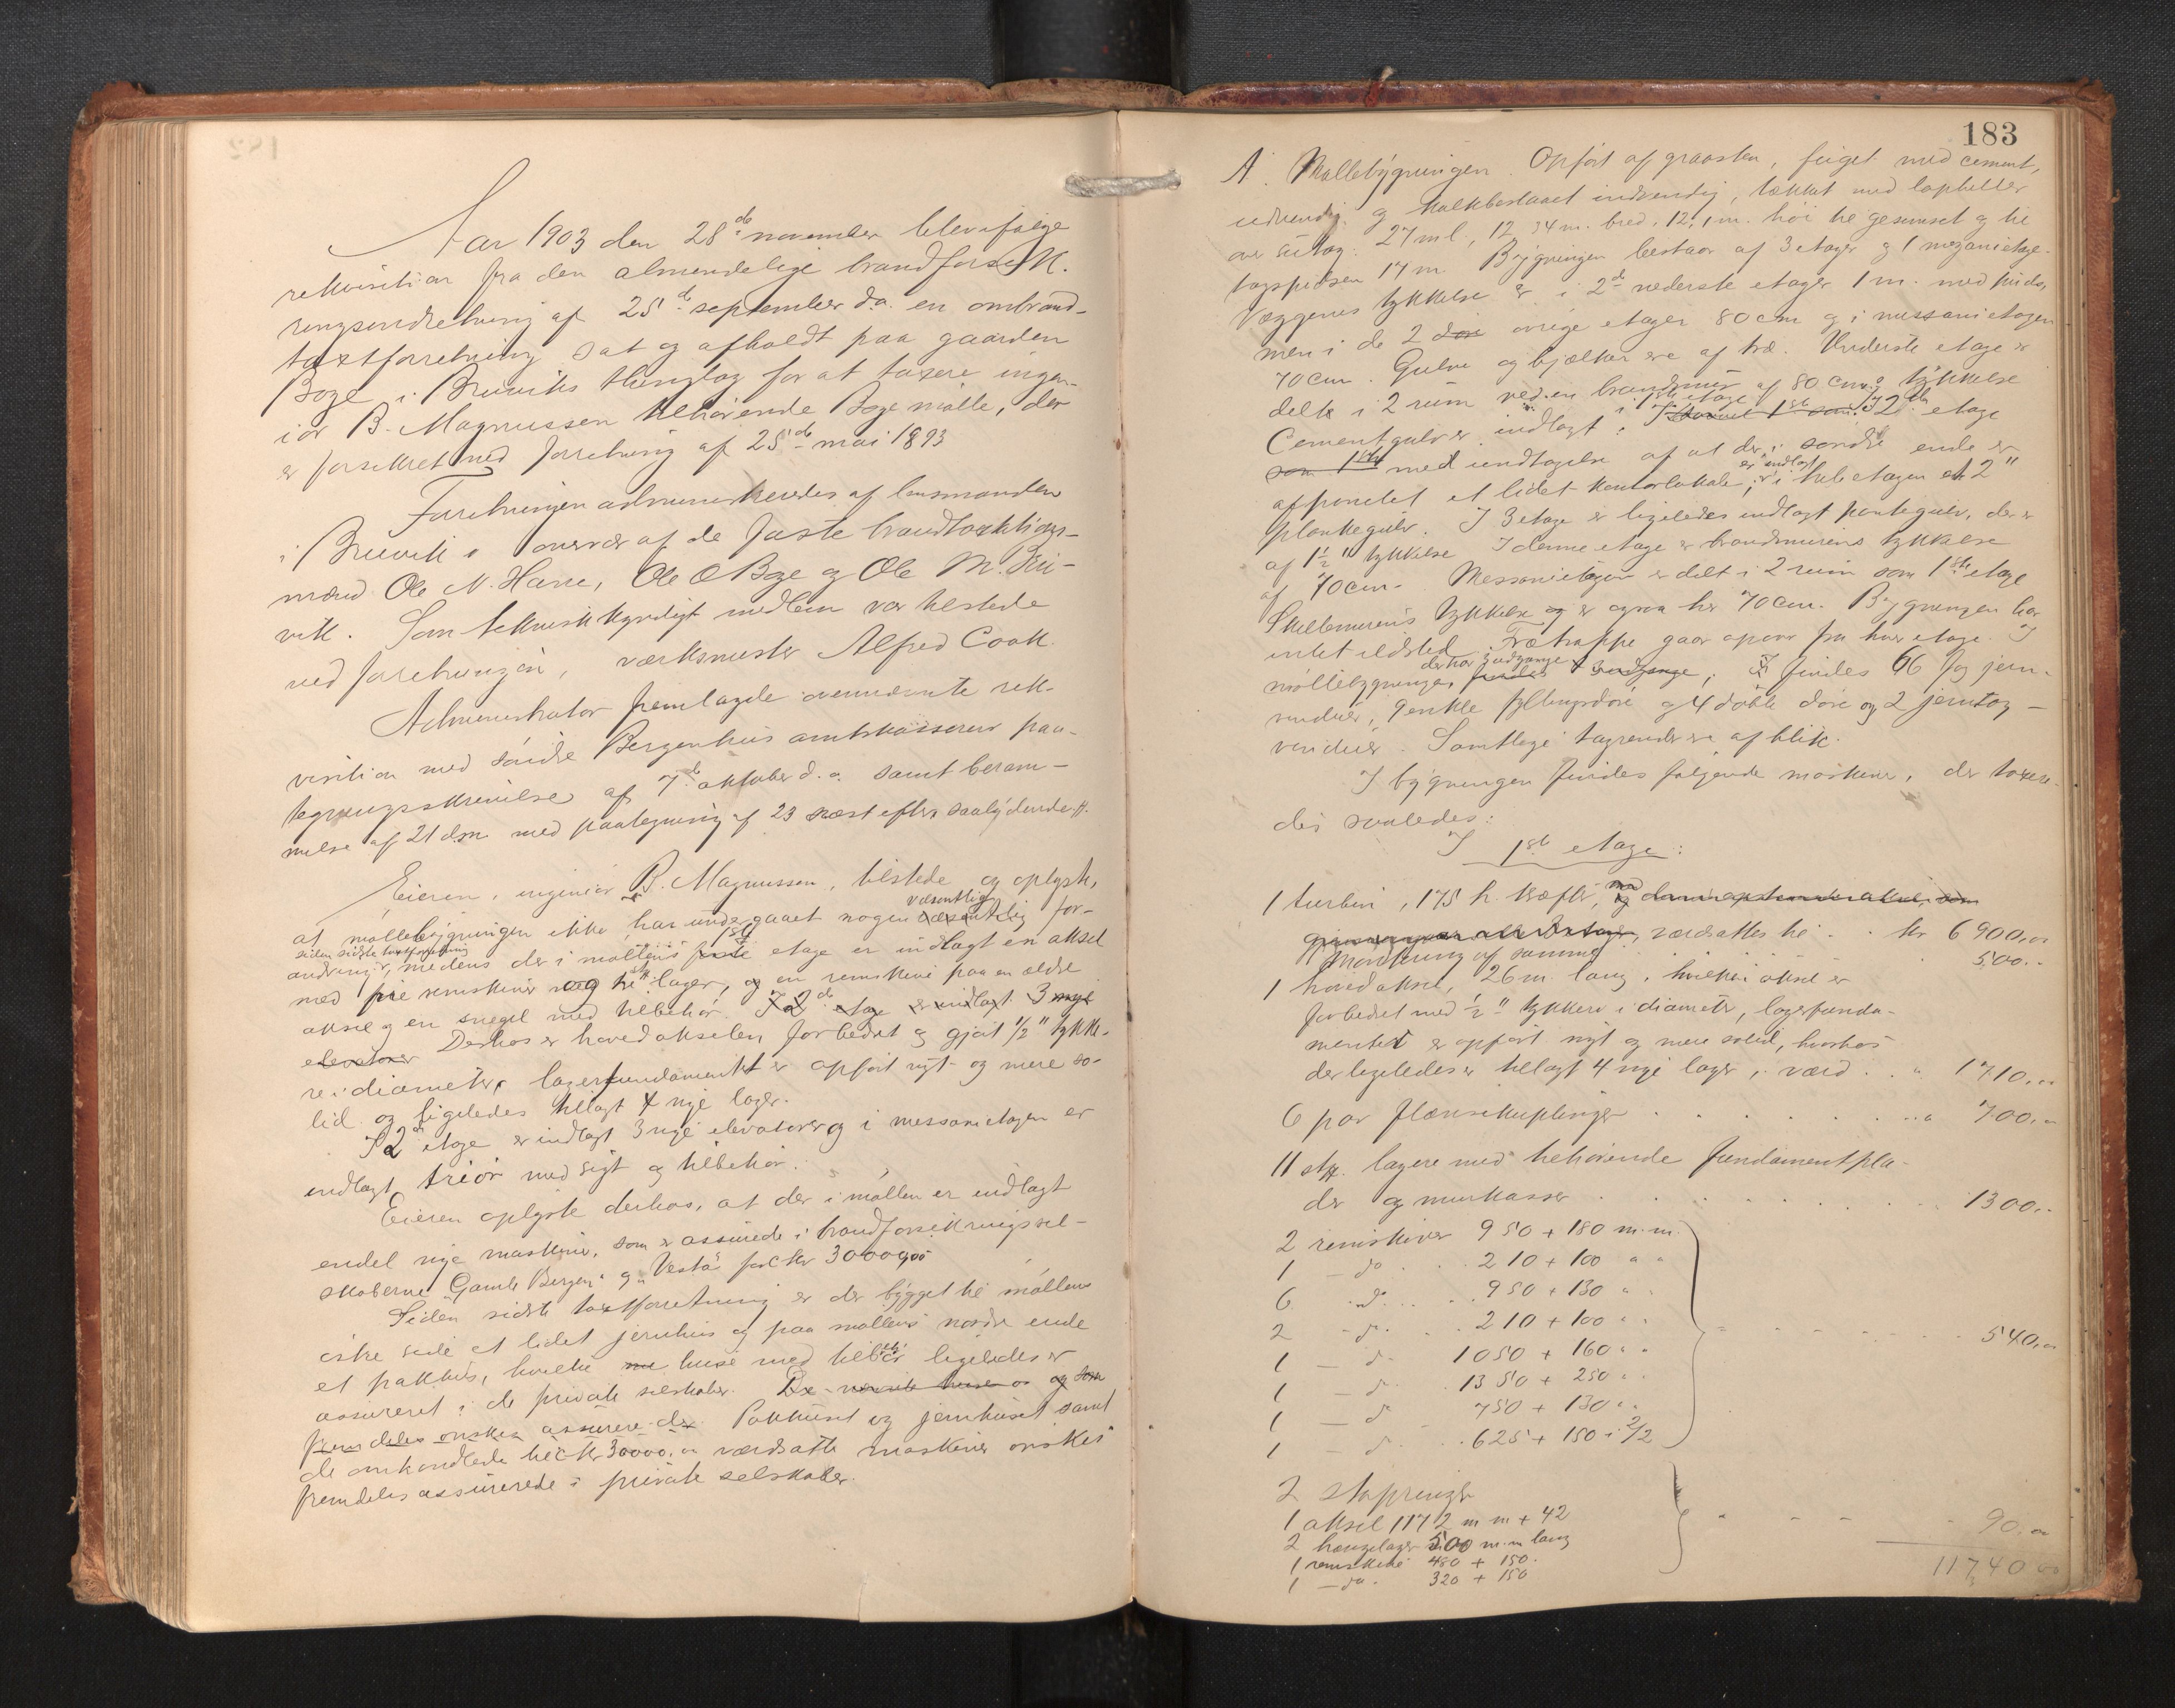 Aar 1903 den 28de november blev ifølge
rekvisition fra den almindelige brandforsik-
ringsindretning af 25de september d.a. en ombrand-
taxtforretning sat og afholdt paa gaarden
Boge i Bruviks thinglag for at taxere ingen-
iør B. Magnussen tilhørende Boge mølle, der
er forsikret ved forretning af 25de mai 1893
Forretningen administreredes af lensmanden
i Bruvik i overvær af de faste brandtaxtions-
mænd Ole N. Hane, Ole O Boge og Ole M. Bru-
vik. Som teknisk kyndigt medlem var tilstede
ved forretningen, værksmester Alfred Cook.
Administrator fremlagde ovennævnte rek-
visition med søndre Bergenhus amtskasserers paa-
tegningsskrivelse af 7de oktober d.a. samt beram-
melse af 21 dsm med paategning af 23 næst efter saalydende #.
Eieren, ingeniør B. Magnussen, tilstede og oplyste,
at møllebygningen ikke har undergaaet nogen væsentlig for-
andring siden sidste taxtforretning, medens der i møllens 1ste etage er indlagt en aksel
med fire remskiver og ti stk. lager, og en remskive paa en ældre
aksel og en snegel med tilbehør. I 2de etage er indlagt 3 nye
elevatorer Derhos er hovedakselen forbedret og gjort 1/2" tykke-
re i diameter, lagerfundamentet er opført nyt og mere so-
lid og ligeledes tillagt 4 nye lager.
I 2de etage er indlagt 3 nye elevatorer og i messanietagen er
indlagt triør med sigt og tilbehør.
Eieren oplyste derhos, at der i møllen er indlagt
endel nye maskiner, som er assurede i brandforsikringssel-
skaberne "Gamle Bergen" og "Vesta" for kr 30000,00
Siden sidste taxtforretning er der bygget til møllens
østre side et lidet jernhus og paa møllens nordre ende
et pakhus, hvilke huse med tilbehør ligeledes er
assureret i de private selskaber. De og som
fremdeles ønskes assurere der Pakhuset og jernhuset samt
de omhandlede til kr 30000,00 værdsatte maskiner ønskes
fremdeles assurerede i private selskaber.
183
A. Møllebygningen. Opført af graasten, fuget med cement,
udvendig og kalkbeslaaet indvendig, tækket med tapheller
over sutag. 27 m l., 12,34 m. bred, 12,1 m. høi til gesimset og til
tagspidsen 17 m Bygningen bestaar af 3 etager og 1 mezanietage.
Væggenes tykkelse er i 2de nederste etager 1 m. med puds,
men i de 2 øvrige etager 80 cm og i messanietagen
70 cm. Gulve og bjælker ere af træ. Underste etage er
delt i 2 rum ved en brandmur af 80 cm.s tykkelse
Cementgulv er indlagt i 1ste etage I 2den etage
som 1ste med undtagelse af at der i søndre ende er
afpanelet et lidet kontorlokale; er indlagt i hele etagen et 2"
plankegulv. I 3 etage er ligeledes indlagt plankegulv, der er
af 1 1/2" tykkelse I denne etage er brandmurens tykkelse
af 70 cm. Messanietagen er delt i 2 rum som 1ste etage
Skillemurens tykkelse er ogsaa her 70 cm. Bygningen har
intet ildsted. Trætrappe gaar opover fra hver etage. I
møllebygningen der har 3 udgange, findes 66 fag jern-
vinduer, 9 enkle fyldingsdøre og 4 doble døre og 2 jerntag-
vinduer. Samtlige tagrender er af blik.
I bygningen findes følgende maskiner, der taxere-
des saaledes:
I 1ste etage:
1 turbin, 175 h. kræfter, med
værdsattes til . . kr 6900,00
Montering af samme . 500..
1 hovedaksel, 26 m. lang, hvilken aksel er
forbedret med 1/2" tykkere i diameter, lagerfunda-
mentet er opført nyt og mere solid, hvorhos
der ligeledes er tillagt 4 nye lager, værd . . " 1710,00
6 par flænsekuplinger . . . . . . " 700,00
11 stk. lagere med tilhørende fundamentpla-
der og murkasser . . . . . . 1300..
2 remskiver 950 + 180 m.m.
1 - do . . 210 + 100 " "
6 - do . . 950 + 130 " "
2 - do . . 210 + 100 " "
1 - do 1050 + 160 " "
1 - do . 1350 + 250 " "
1 - do 750 + 130 " "
1 - do . 625 + 150 i 2/2
540,00
2 stopringe
1 aksel 1172 m m + 42
2 hængelager 500 m.m lang
1 remskive 480 + 150.
1 - do. 320 + 150
90,00
11740 00